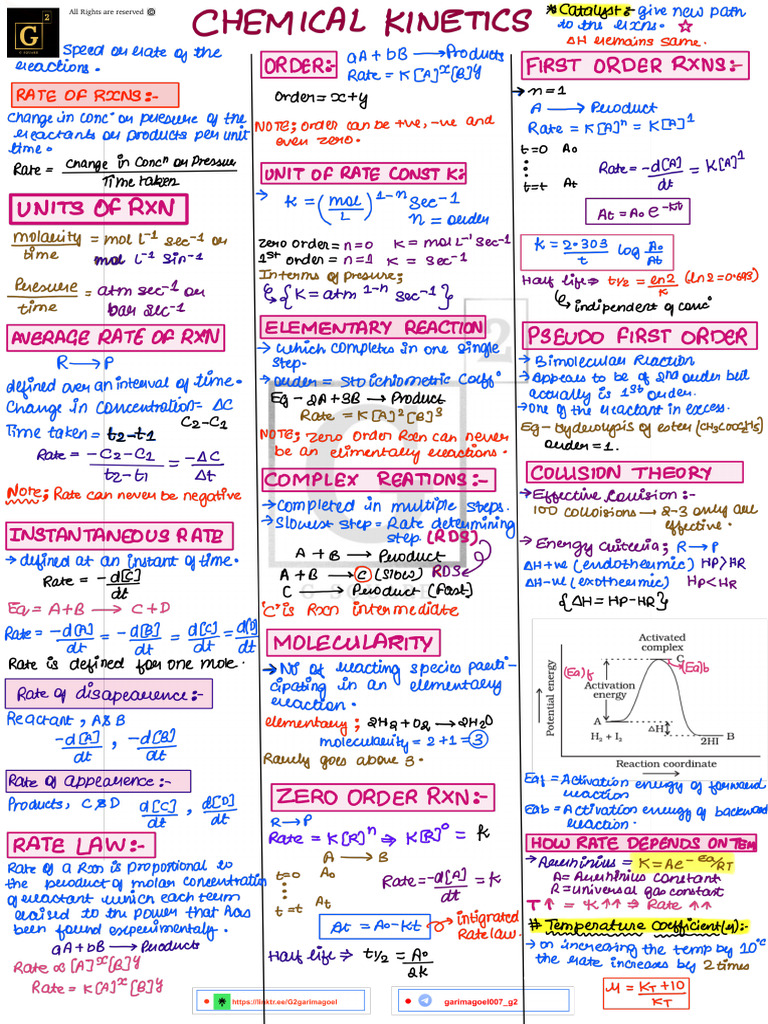 All Rights are reserved ©
G
2
G SQUARE
CHEMICAL KINETICS
* Catalyst:- give new path
to the rxns. ☆
ΔH remains same.
Speed or rate of the
reactions.
RATE OF RXNS:-
Change in concⁿ or pressure of the
reactants or products per unit
time.
Rate = Change in Concⁿ or Pressure
Time taken
UNITS OF RXN
molarity = mol L⁻¹ sec⁻¹ or
time mol L⁻¹ min⁻¹
Pressure = atm sec⁻¹ or
time bar sec⁻¹
AVERAGE RATE OF RXN
R → P
defined over an interval of time.
Change in concentration = ΔC
C2-C1
Time taken = t2-t1
Rate = -C2-C1 = -ΔC
t2-t1 Δt
Note; Rate can never be negative
INSTANTANEOUS RATE
→ defined at an instant of time.
Rate = -d[C]
dt
Eq = A+B → C+D
Rate = -d[A] = -d[B] = d[C] = d[D]
dt dt dt dt
Rate is defined for one mole.
Rate of disapearence:-
Reactant, A&B
-d[A] , -d[B]
dt dt
Rate of appearence:-
Products, C&D d[C] , d[D]
dt dt
RATE LAW:-
Rate of a Rxn is propotional to
the product of molar concentration
of reactant which each term
raised to the power that has
been found experimentaly.
aA+bB → Products
Rate ∝ [A]ˣ[B]ʸ
Rate = K[A]ˣ[B]ʸ
ORDER:- aA+bB → Products
Rate = K[A]ˣ[B]ʸ
Order = x+y
NOTE; Order can be +ve, -ve and
even zero.
UNIT OF RATE CONST K:
→ K = (mol/L)¹⁻ⁿ sec⁻¹
n = order
zero order = n=0 K = mol L⁻¹ sec⁻¹
1st order = n=1 K = sec⁻¹
In terms of pressure;
↳ {K = atm¹⁻ⁿ sec⁻¹}
ELEMENTARY REACTION
→ which completes in one single
step.
→ order = Stoichiometric Coeffⁿ
Eg - 2A+3B → Product
Rate = K[A]²[B]³
NOTE; zero order Rxn can never
be an elimentary reactions.
COMPLEX REATIONS:-
→ Completed in multiple steps.
→ Slowest step = Rate determining
step (RDS)
A + B → Product
A + B → C (Slow) RDS
C → Product (Fast)
'C' is Rxn intermediate
MOLECULARITY
→ No of reacting species parti-
cipating in an elementary
reaction.
elementary; 2H2+O2 → 2H2O
molecularity = 2+1 = 3
Rarely goes above 3.
ZERO ORDER RXN:-
R → P
Rate = K[R]ⁿ ⇒ K[R]⁰ = K
A → B
t=0 A₀
t=t At
Rate = -d[A] = K
dt
At = A₀-Kt → intigrated
Rate law.
Half life ⇒ t1/2 = A₀
2K
FIRST ORDER RXNS:-
→ n = 1
A → Product
Rate = K[A]ⁿ = K[A]¹
t=0 A₀
t=t At
Rate = -d[A] = K[A]¹
dt
At = A₀ e⁻ᴷᵗ
K = 2.303 log A₀
t At
Half life ⇒ t1/2 = ln2 (ln2=0.693)
K
↳ independent of concⁿ
PSEUDO FIRST ORDER
→ Bimolecular Reaction
→ Appears to be of 2nd order but
actually is 1st order.
→ One of the reactant in excess.
Eg - hydrolysis of ester (CH3COOC2H5)
order = 1.
COLLISION THEORY
→ Effective Collision:-
100 colloisions → 2-3 only are
effective.
→ Energy Criteria; R → P
ΔH+ve (endothermic) HP>HR
ΔH-ve (exothermic) HP<HR
{ΔH = HP-HR}
Activated
complex
C
(Ea)f
(Ea)b
Activation
energy
Potential energy
A
H₂ + I₂
ΔH
2HI
B
Reaction coordinate
Eaf = Activation energy of forward
reaction
Eab = Activation energy of backward
reaction.
HOW RATE DEPENDS ON TEM
→ Arrhinius = K = Ae⁻ᴱᵃ/ᴿᵀ
A = Arrhinius constant
R = universal gas constant
T↑ = K↑↑ ⇒ Rate↑↑
# Temperature coefficient(μ):-
→ on increasing the temp by 10°C
the rate increases by 2 times
μ = KT+10
KT
https://linktr.ee/G2garimagoel
garimagoel007_g2